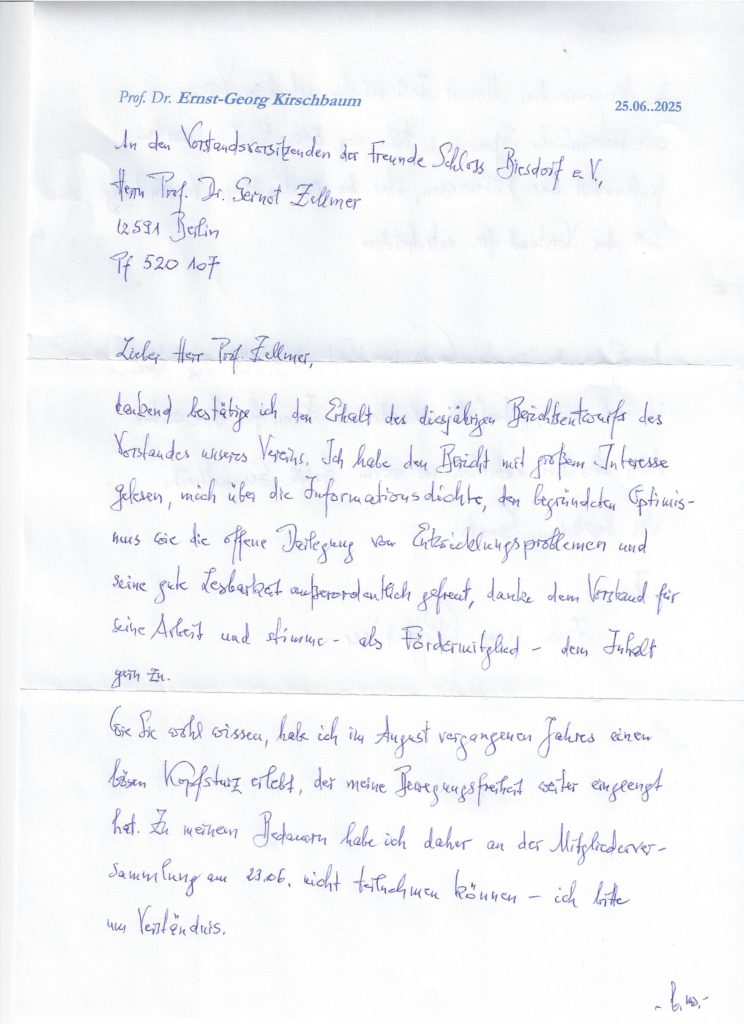 Prof. Dr. Ernst-Georg Kirschbaum
25.06..2025
An den Vorstandsvorsitzenden der Freunde Schloss Biesdorf e.V.,
Herrn Prof. Dr. Gernot Zellmer
12591 Berlin
Pf 520 107
Lieber Herr Prof. Zellmer,
dankend bestätige ich den Erhalt des diesjährigen Berichtsentwurfs des
Vorstandes unseres Vereins. Ich habe den Bericht mit großem Interesse
gelesen, mich über die Informationsdichte, den begründeten Optimis-
mus wie die offene Darlegung von Entwicklungsproblemen und
seine gute Lesbarkeit außerordentlich gefreut, danke dem Vorstand für
seine Arbeit und stimme – als Fördermitglied – dem Inhalt
gern zu.
Wie Sie wohl wissen, habe ich im August vergangenen Jahres einen
bösen Kopfsturz erlebt, der meine Bewegungsfreiheit weiter eingeengt
hat. Zu meinem Bedauern habe ich daher an der Mitgliederver-
sammlung am 23.06. nicht teilnehmen können – ich bitte
um Verständnis.
- b.w.-